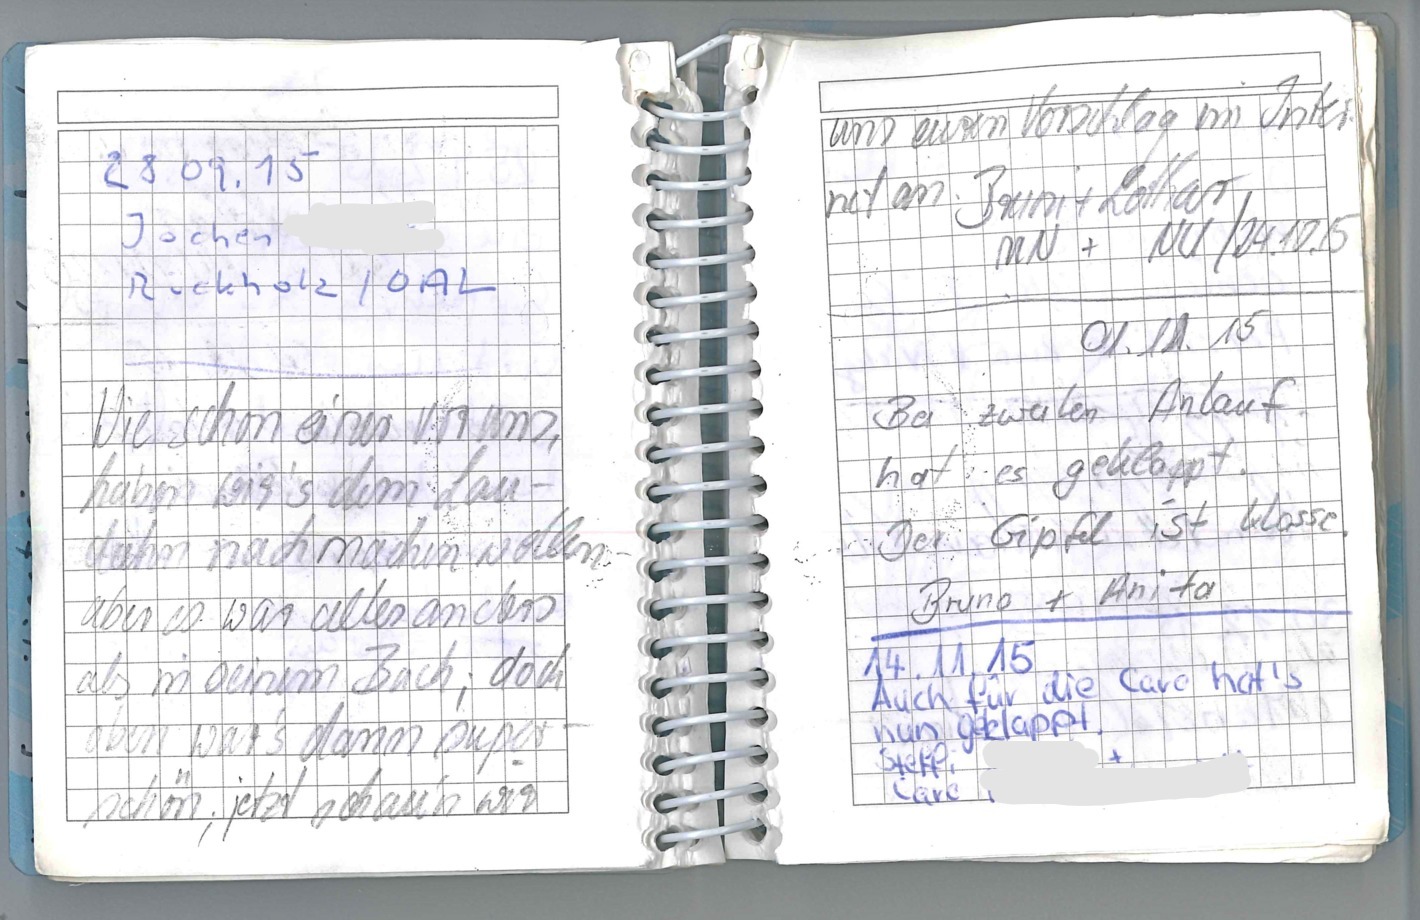 28.09.15
Jochen
Rückholz / OAL
Wie schon einer vor uns,
haben wir's dem Lau-
nachmachen wollen
aber es war alles anders
als in deinem Buch, doch
oben war's dann super-
schön, jetzt schau'n wir
uns euren Vorschlag im Inter-
net an. Bruni + Lothar,
MN + NU / 24.10.15
01.11.15
Bei zweiten Anlauf
hat es geklappt.
Der Gipfel ist klasse.
Bruno + Anita
14.11.15
Auch für die Caro hat's
nun geklappt.
Steffi +
Caro